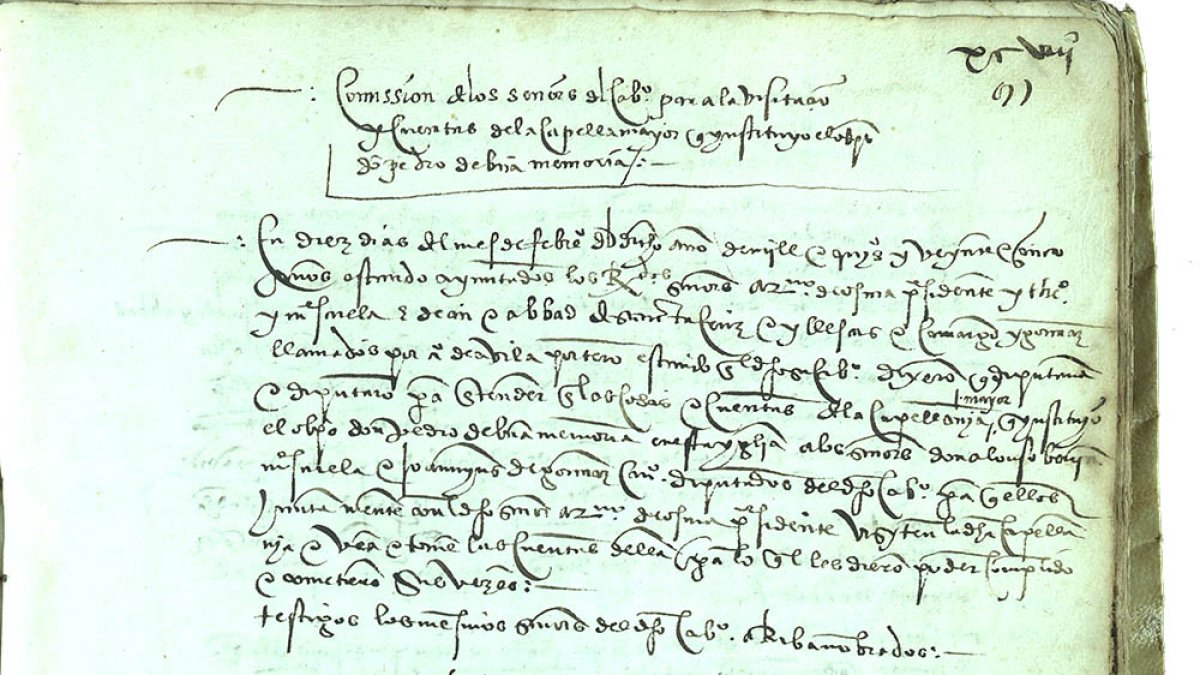 xc vii
97
Comission de los senores del Cabº para la visitacion
y cuentas de la Capella mayor q ynstituyo el obpo
don pedro de buena memoria
En diez dias del mes de febrº del dicho año de mill e quiºs y veynte e cinco
años estando ayuntados los Rdos señores arno de osma presidente y thrº
y mº suela e dean e abbad de sancta Cruz e yllescas e Camargo y gomar
llamados por de avila portero estando en el dho su Cabº dixeron que diputavan
e diputaron pa entender en las cosas e cuentas de la Capellania mayor q ynstituyo
el obpo don pedro de buena memoria en esta yglia a los señores don alonso
mº suela e de gomar diputados del dho Cabº pa que ellos
Juntamente con el dho señor arno de osma presidente visyten la dha capella
nja e vean e tomen las cuentas della pa lo ql les dieron poder complido
e cometieron sus vezes:
testigos los mesmos señores del dho Cabº arriba nonbrados: